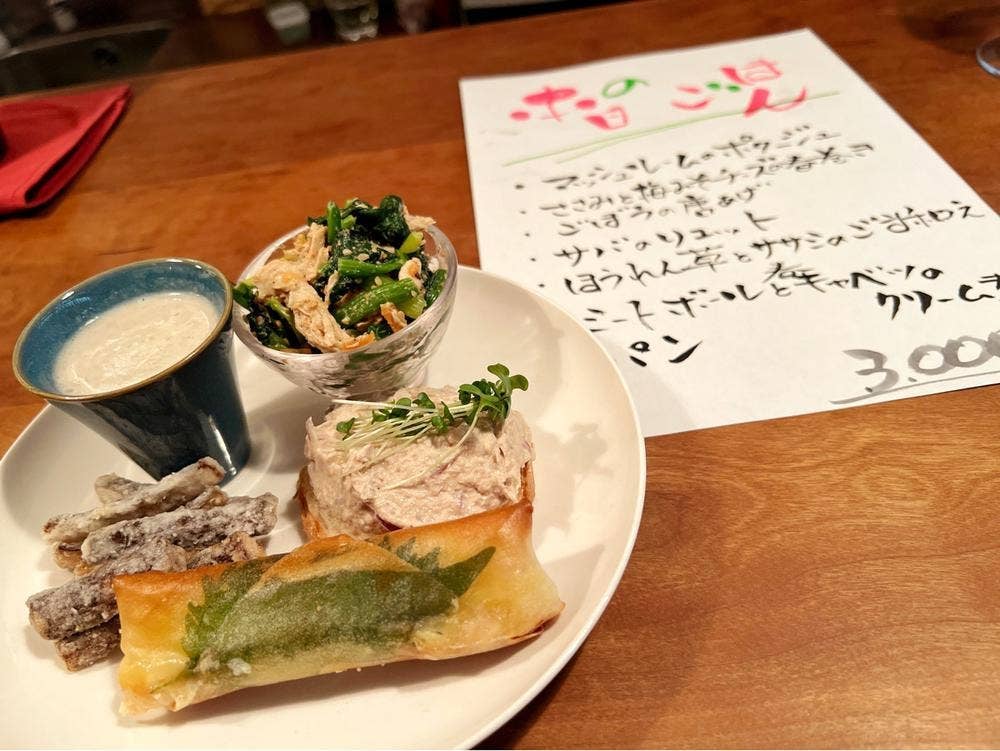 のごはん
・マッシュルームのポタージュ
・ささみと梅みそチーズの春巻き
・ごぼうの唐あげ
・サバのリエット
・ほうれん草とササミのごま和え
ミートボールと春キャベツの
クリーム
パン
3.000